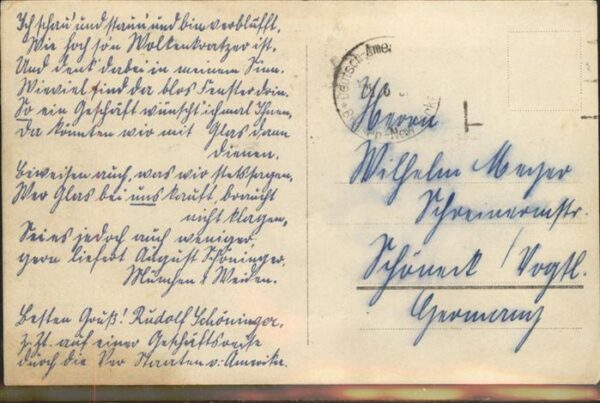 Ich schau' und staun' und bin verblüfft,
Wie hoch so'n Wolkenkratzer ist.
Und denk' dabei in meinem Sinn.
Wieviel sind da blos Fenster drin.
So ein Geschäft wünscht' ich mal Ihnen,
Da könnten wir mit Glas dann
dienen.
Beweisen auch, was wir stets sagen,
Wer Glas bei uns kauft, braucht
nicht klagen,
Sei es jedoch auch weniger,
gern liefert August Schöninger,
München & Weiden.
Besten Gruß! Rudolf Schöninger,
z. Zt. auf einer Geschäftsreise
durch die Ver Staaten v. Amerika.
Deutsch-Amer
Herrn
Wilhelm Meyer
Schreinermstr.
Schöneck / Vogtl.
Germany